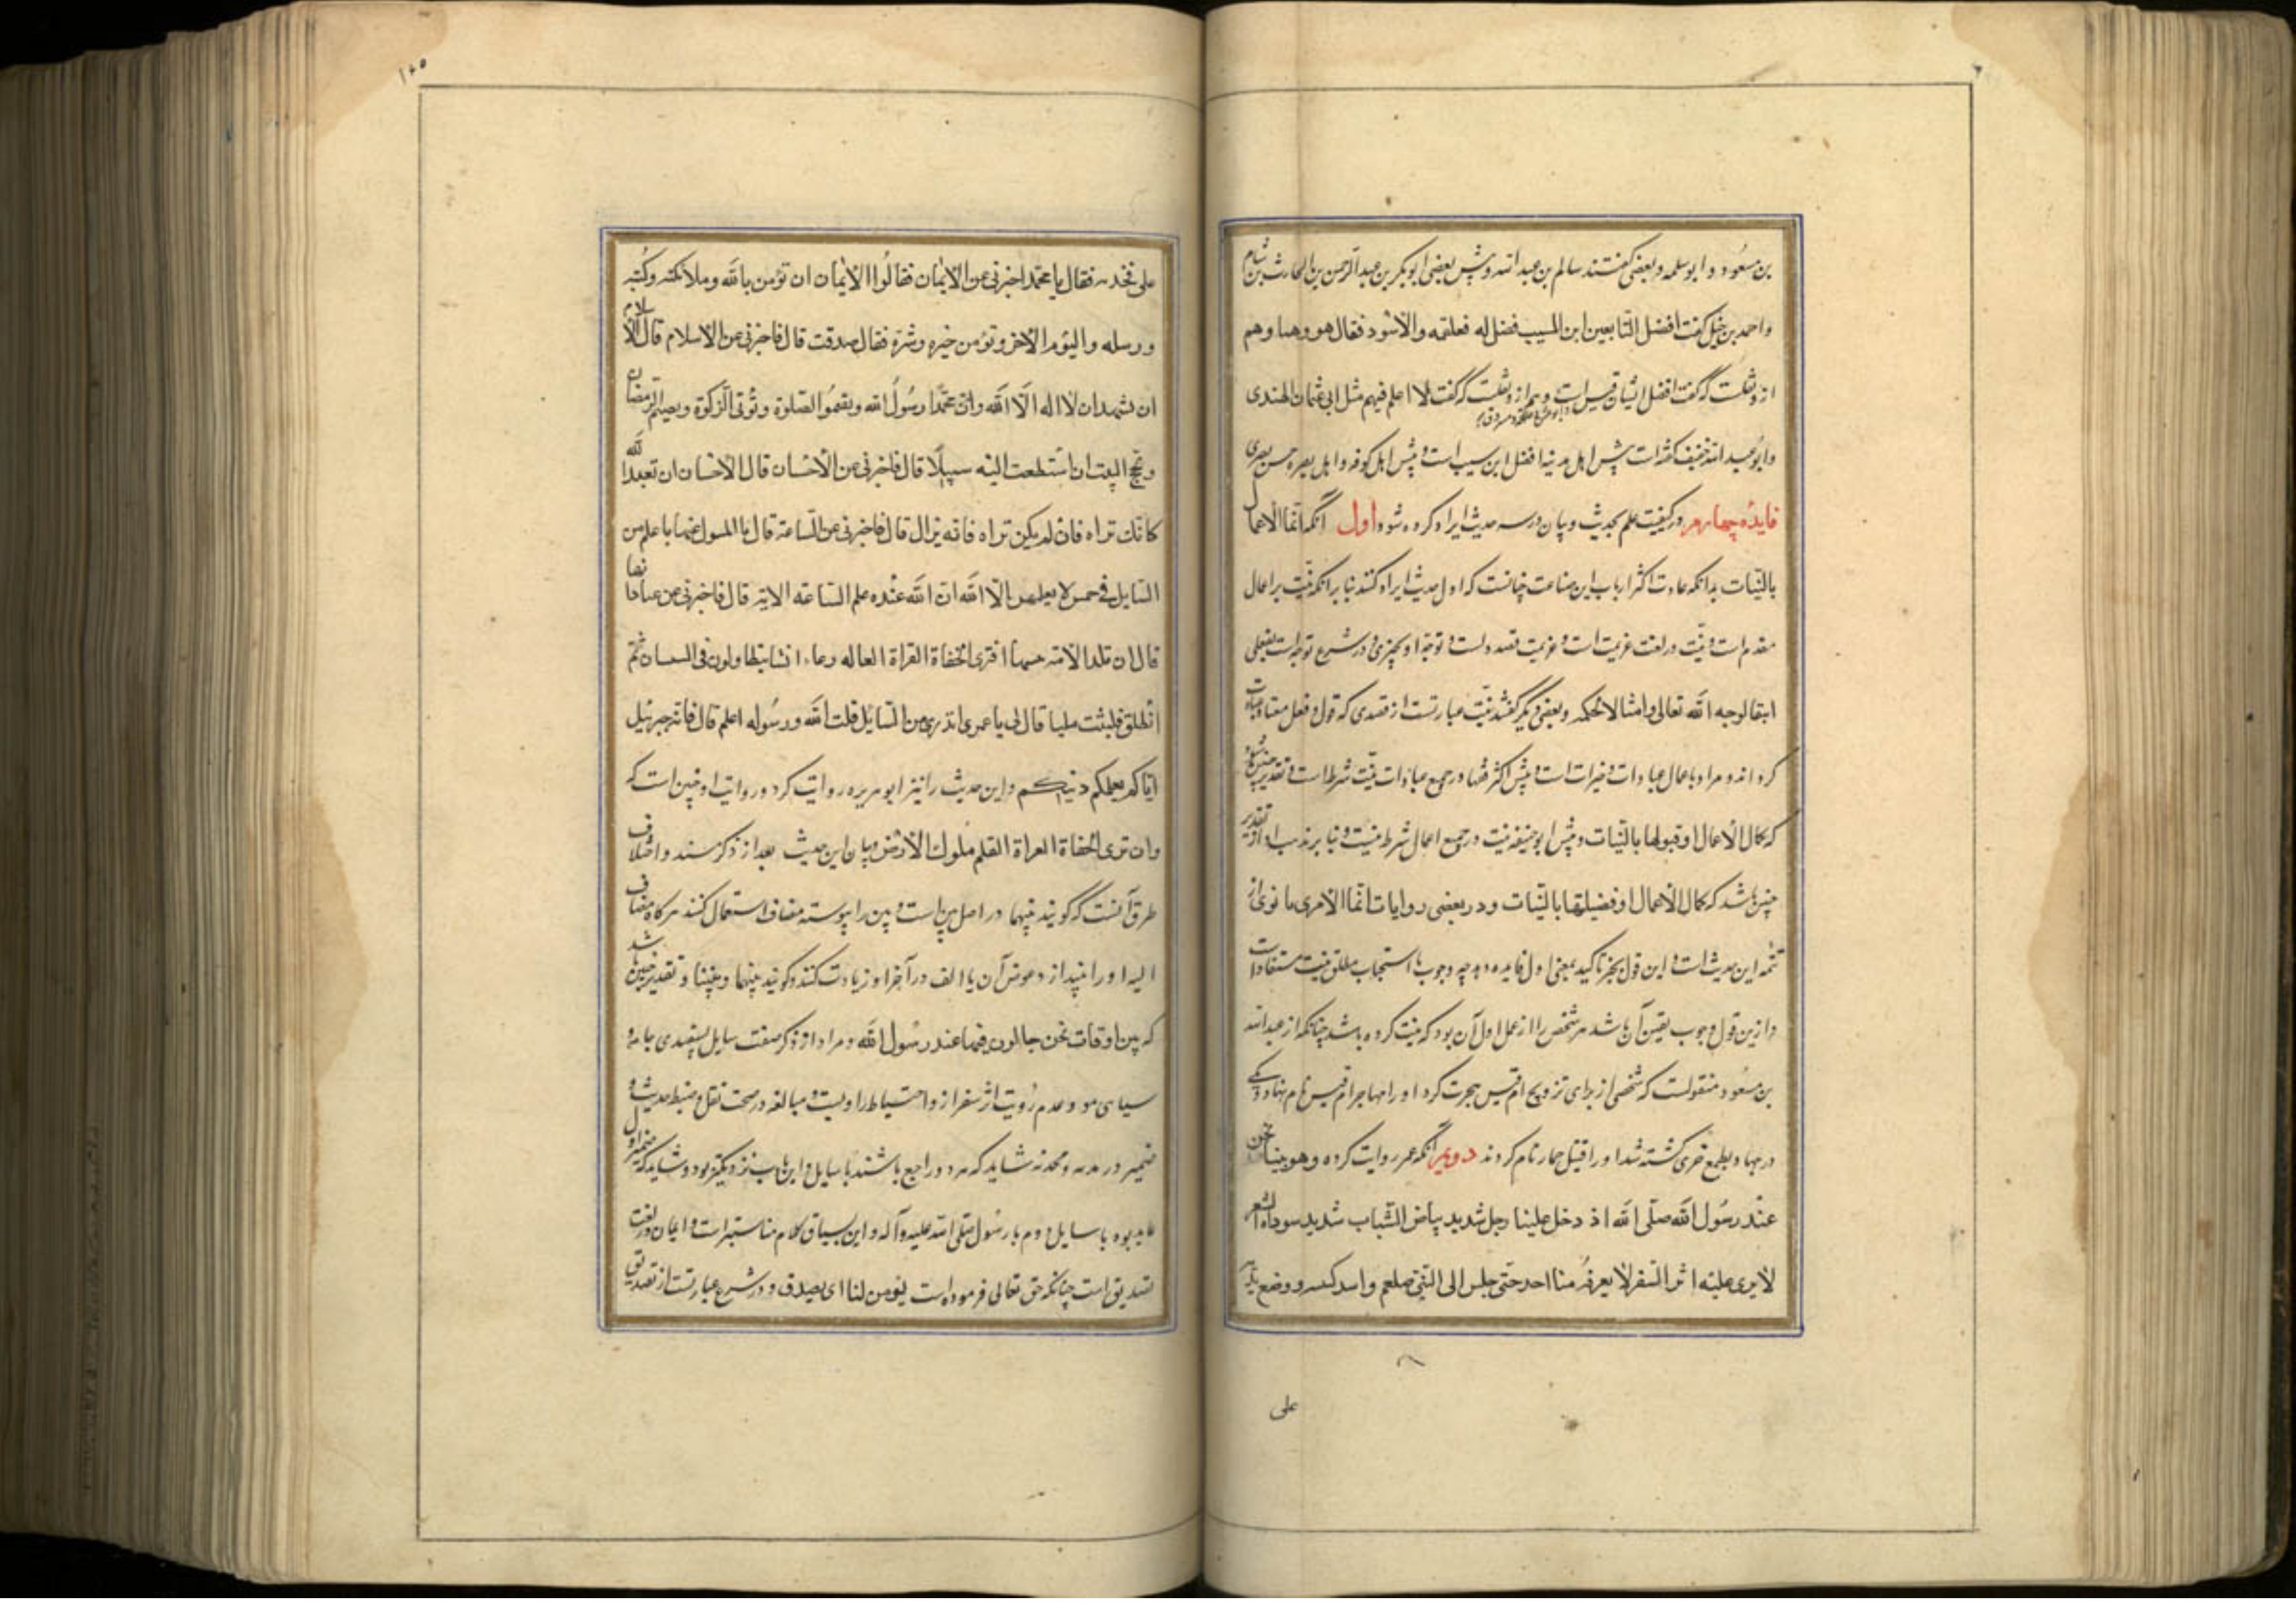 بن مسعود و ابو سلمه و بعضی گفتند سالم بن عبد الله و پیش بعضی ابو بکر بن عبد الرحمن بن الحارث بن هشام
و احمد بن حنبل گفت افضل التابعین ابن المسیب فضل له فعلقمه والاسود فقال هو وهما وهم
از و نقلست که گفت افضل ایشان قیس است و هم از و نقلست که گفت لا اعلم فیهم مثل ابی عثمان الهندی
و ابو عبد الله خفیف گفته است پیش اهل مدینه افضل ابن مسیب است و پیش اهل کوفه و اهل بصره حسن بصری
فایده چهارم در کیفیت علم بحدیث و بیان در سه حدیث ایراد کرده شود اول آنکه انما الاعمال
بالنیات بدانکه عادت اکثر ارباب این صناعت چنانست که اول حدیث ایراد کنند بنا برانکه نیت بر اعمال
مقدم است و نیت در لغت عزیمت است و عزیمت قصد دلست و توجه او بچیزی و در شرع توجه است بفعلی
ابتغا لوجه الله تعالی وامتثالا لحکمه و بعضی دیگر گفتند نیت عبارتست از قصدی که قول و فعل معتاد عبادت
گرداند و مراد باعمال عبادات و خیرات است و پیش اکثر فقها در جمیع عبادات نیت شرط است و تقدیر چنین باشد
که کمال الاعمال او قبولها بالنیات و پیش ابو حنیفه نیت در جمیع اعمال شرط نیست و بنا بر مذهب او تقدیر
چنین باشد که کمال الاعمال او فضیلتها بالنیات ودر بعضی روایات انما لامری ما نوی از
تتمه این حدیث است و این قول بجز تاکید بمعنی اول فایده دهد چه وجوب با استحباب مطلق نیت مستفاد است
و ازین قول وجوب یقین آن باشد هر شخص را از عمل اول آن بود که نیت کرده باشد چنانکه از عبد الله
بن مسعود منقولست که شخصی از برای تزویج ام قیس هجرت کرد او را مهاجر ام قیس نام نهاد و یکی
در جهاد بطمع خری کشته شد او را قتیل حمار نام کردند دویم آنکه عمر روایت کرده وهو بینا نحن
عند رسول الله صلی الله اذ دخل علینا رجل شدید بیاض الثیاب شدید سواد الشعر
لایری علیه اثر السفر لا یعرفه منا احد حتی جلس الی النبی صلعم واسند ووضع
علی
۱۰۵
علی فخذیه فقال یا محمد اخبرنی عن الایمان فقالوا الایمان ان تؤمن بالله وملائکته وکتبه
ورسله والیوم الاخر وتؤمن خیره وشره فقال صدقت قال فاخبرنی عن الاسلام قال الاسلام
ان تشهد ان لا اله الا الله وان محمدا رسول الله ویقموا الصلوة وتؤتی الزکوة ویصم رمضان
وتحج البیت ان استطعت الیه سبیلا قال فاخبرنی عن الاحسان قال الاحسان ان تعبد الله
کانک تراه فان لم یکن تراه فانه یراک قال فاخبرنی عن الساعة قال ما المسول عنها باعلم من
السایل فی خمس لا یعلمهن الا الله ان الله عنده علم الساعة الایة قال فاخبرنی عن
قال ان تلد الامة الحفاة العراة العاله رعاء الشا یتطاولون فی ثم
انطلق فلبثت ملیا قال لی یا عمر اتدری من السایل قلت الله ورسوله اعلم قال فانه جبرئیل
اتاکم یعلمکم دینکم و این حدیث را نیز ابو هریره روایت کرد و روایت او چنین است که
وان تری الحفاة العراة ملوک الارض و بیان این حدیث بعد از ذکر سند و اختلاف
طرق آنست که گویند بینهما در اصل بین است و بین را پیوسته مضاف استعمال کنند هر گاه مضاف
الیه او را نیندازد عوض آن یا الف در آخر او زیادت کنند و گویند بینهما و بیننا و تقدیر چنین باشد
که بین اوقات نحن جالسون فیها عند رسول الله و مراد از ذکر صفت سایل بسفیدی جامه و
سیاهی مو و عدم رؤیت اثر سفر ازو احتیاط راویست و مبالغه در صحت نقل و ضبط حدیث و
ضمیر در شاید که هر دو راجع باشند با سایل و این بادب نزدیکتر بود و شاید که ضمیر اول
عاید بود با سایل و دوم با رسول صلی الله علیه وآله و این بسیاق کلام مناسبتر است و ایمان در لغت
تصدیق است چنانکه حق تعالی فرموده است یؤمن لنا ای یصدق و در شرع عبارتست از تصدیق